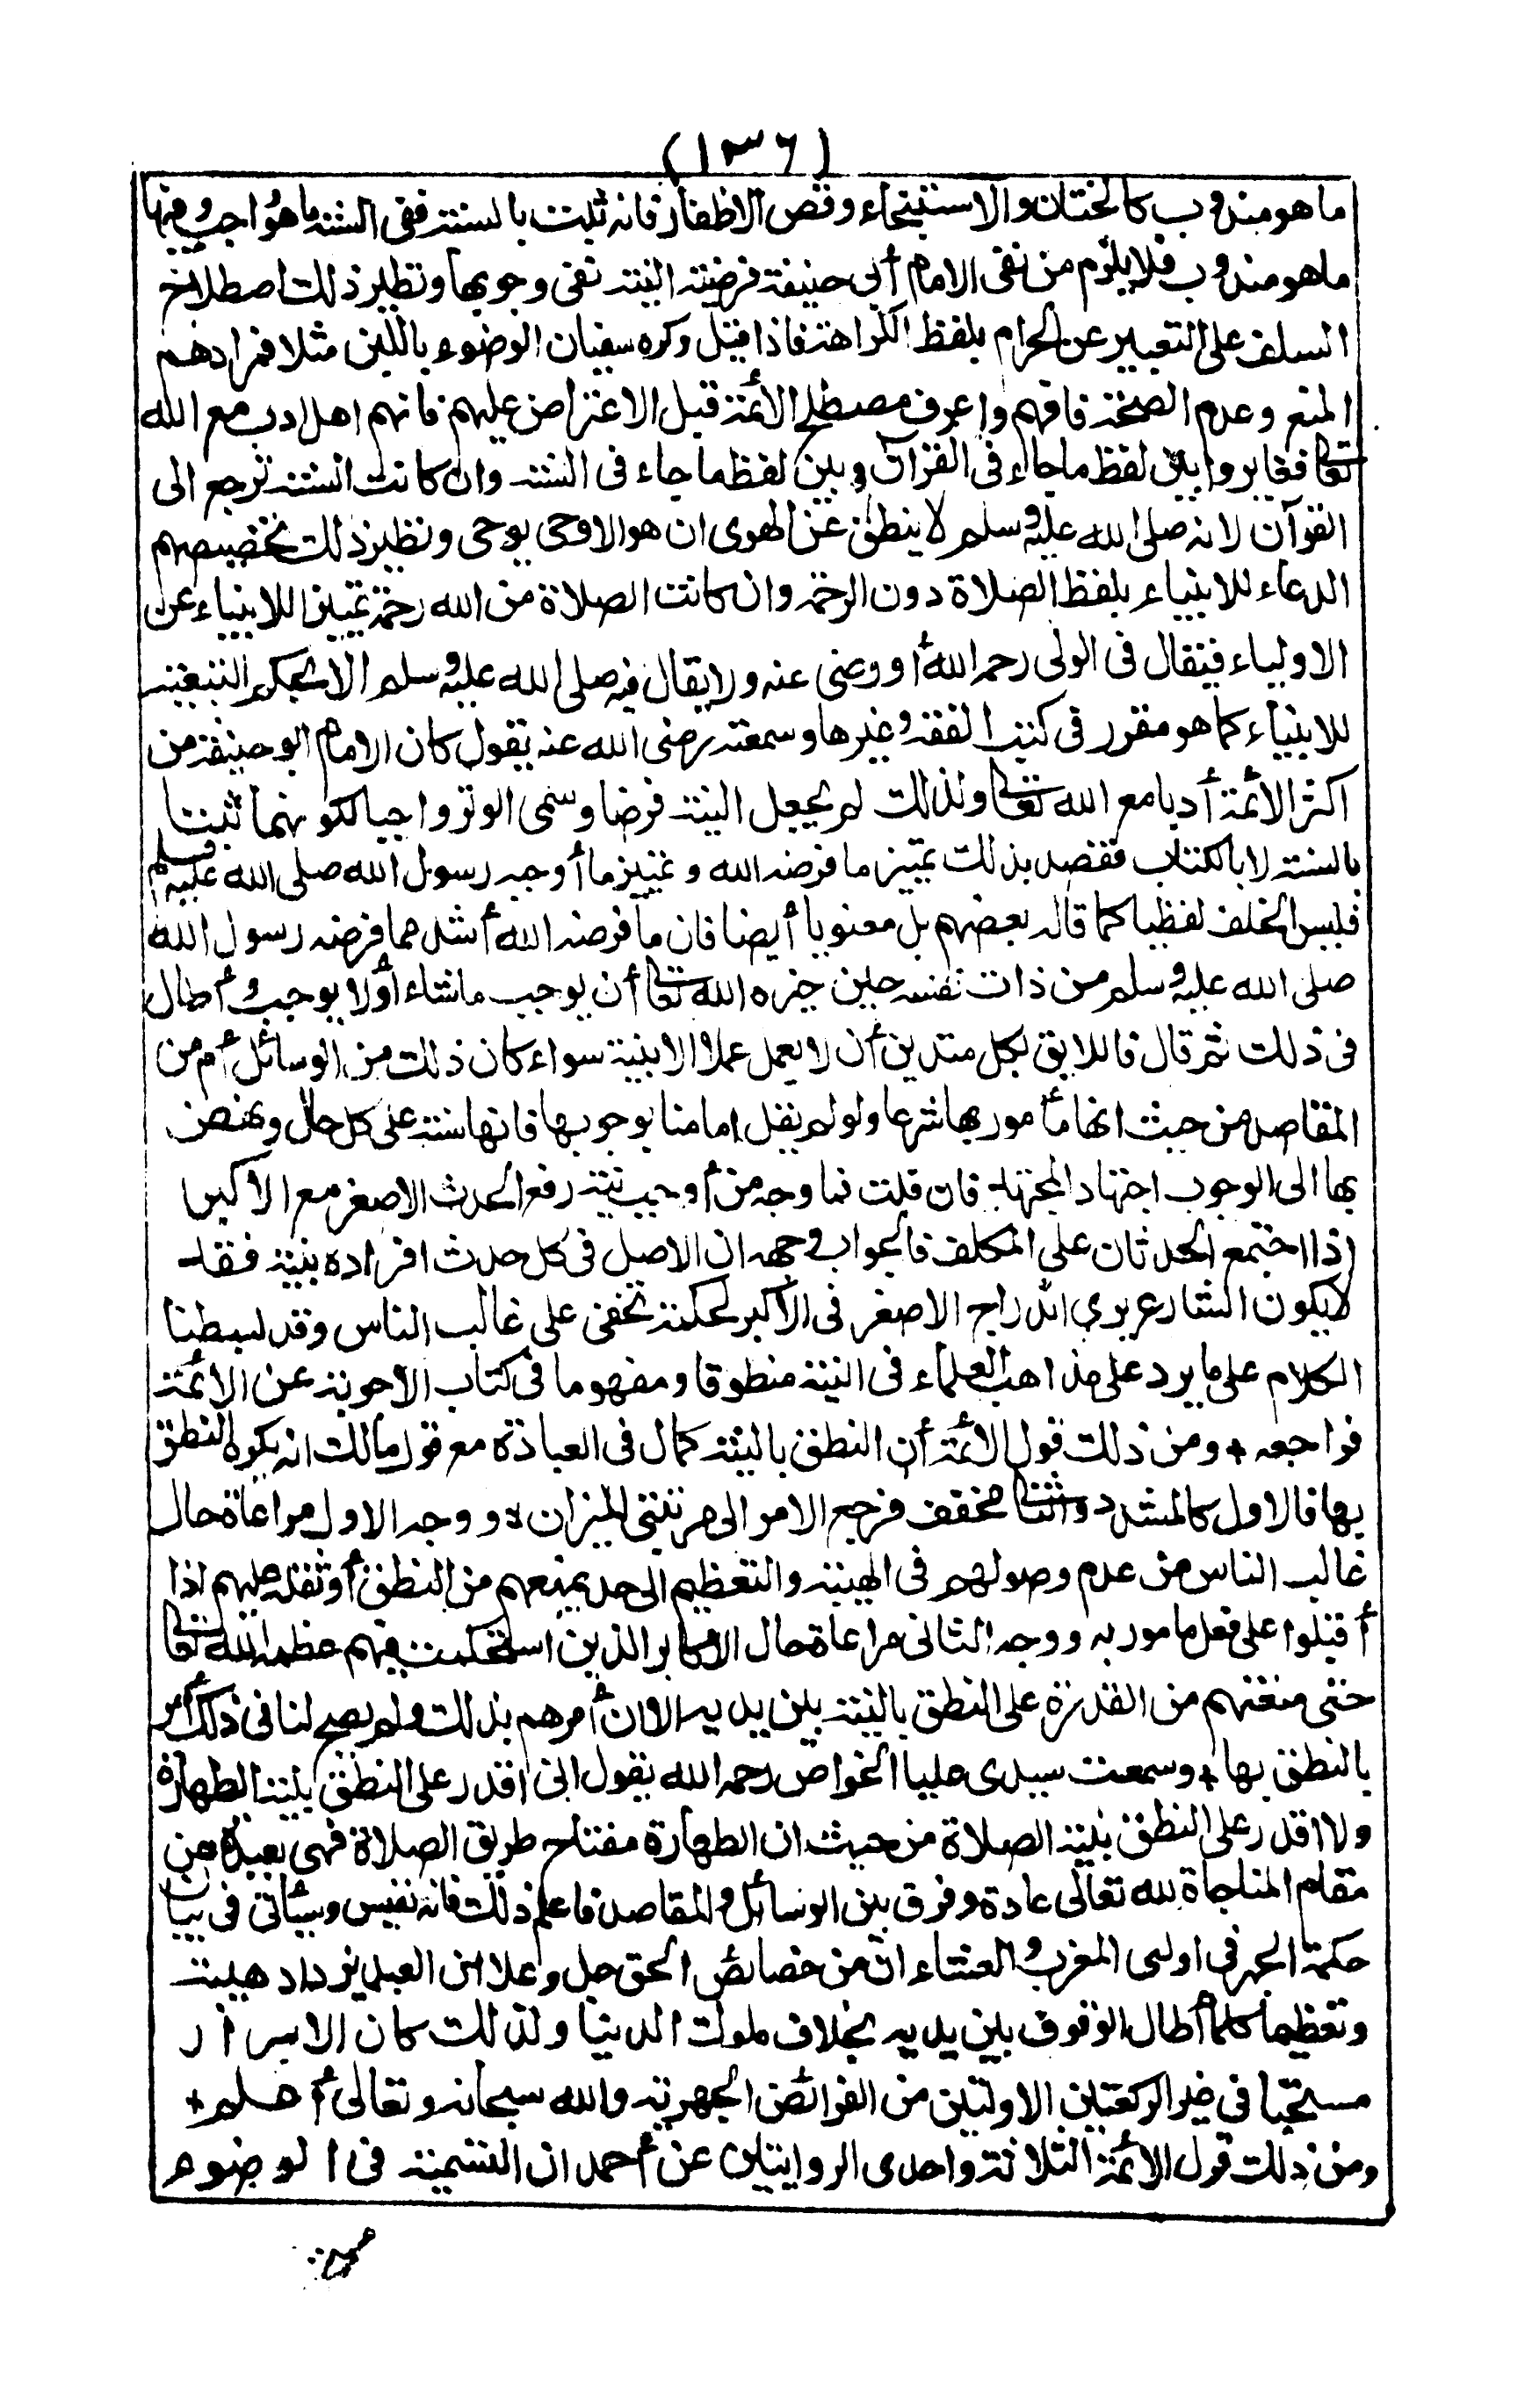 (١٣٦)
ما هو مندوب كالختان والاستنجاء وقص الاظفار فانه ثبت بالسنة ففى السنة ما هو واجب ومنها
ما هو مندوب فلا يلزم من نفى الامام أبى حنيفة فرضية النية نفى وجوبها ونظير ذلك اصطلاح
السلف على التعبير عن الحرام بلفظ الكراهة فاذا قيل وكره سفيان الوضوء باللبن مثلا فمرادهم
المنع وعدم الصحة فافهم واعرف مصطلح الأئمة قبل الاعتراض عليهم فانهم اهل ادب مع الله
تعالى فغايروا بين لفظ ما جاء فى القرآن وبين لفظ ما جاء فى السنة وان كانت السنة ترجع الى
القرآن لانه صلى الله عليه وسلم لا ينطق عن الهوى ان هو الا وحى يوحى ونظير ذلك تخصيصهم
الدعاء للانبياء بلفظ الصلاة دون الرحمة وان كانت الصلاة من الله رحمة تمييزا للانبياء عن
الاولياء فيقال فى الولى رحمه الله أو رضى عنه ولا يقال فيه صلى الله عليه وسلم الا بحكم التبعية
للانبياء كما هو مقرر فى كتب الفقه وغيرها وسمعته رضى الله عنه يقول كان الامام ابو حنيفة من
اكثر الأئمة أدبا مع الله تعالى ولذلك لم يجعل النية فرضا وسمى الوتر واجبا لكونهما ثبتا
بالسنة لا بالكتاب فقصد بذلك تمييز ما فرضه الله وتمييز ما أوجبه رسول الله صلى الله عليه وسلم
فليس الخلف لفظيا كما قاله بعضهم بل معنويا أيضا فان ما فرضه الله أشد مما فرضه رسول الله
صلى الله عليه وسلم من ذات نفسه حين خيره الله تعالى أن يوجب ما شاء أو لا يوجب وأطال
فى ذلك ثم قال فاللايق بكل متدين أن لا يعمل عملا الا بنية سواء كان ذلك من الوسائل أم من
المقاصد من حيث انها مأمور بها شرعا ولو لم يقل امامنا بوجوبها فانها سنة على كل حال وينهض
بها الى الوجوب اجتهاد المجتهد فان قلت فما وجه من أوجب نية رفع الحدث الاصغر مع الاكبر
اذا اجتمع الحدثان على المكلف فالجواب وجهه ان الاصل فى كل حدث افراده بنية فقد
لا يكون الشارع يرى اندراج الاصغر فى الأكبر لحكمة تخفى على غالب الناس وقد بسطنا
الكلام على ما يرد على مذاهب العلماء فى النية منطوقا ومفهوما فى كتاب الاجوبة عن الأئمة
فراجعه + ومن ذلك قول الأئمة أن النطق بالنية كمال فى العبادة مع قول مالك انه يكره النطق
بها فالاول كالمشدد والثانى مخفف فرجع الامر الى مرتبتى الميزان ه ووجه الاول مراعاة حال
غالب الناس من عدم وصولهم فى الهيبة والتعظيم الى حد يمنعهم من النطق أو ثقله عليهم اذا
أقبلوا على فعل مامور به ووجه الثانى مراعاة حال الاكابر الذين استحكمت فيهم عظمة الله تعالى
حتى منعتهم من القدرة على النطق بالنية بين يديه الا ان أمرهم بذلك ولم يصح لنا فى ذلك أمر
بالنطق بها + وسمعت سيدى عليا الخواص رحمه الله يقول انى اقدر على النطق بنية الطهارة
ولا اقدر على النطق بنية الصلاة من حيث ان الطهارة مفتاح طريق الصلاة فهى بعيدة عن
مقام المناجاة لله تعالى عادة وفرق بين الوسائل والمقاصد فاعلم ذلك فانه نفيس وسيأتى فى بيان
حكمة الجهر فى اولى المغرب والعشاء ان من خصائص الحق جل وعلا ان العبد يزداد هيبة
وتعظيما كلما أطال الوقوف بين يديه بخلاف ملوك الدنيا ولذلك كان الاسرار
مستحبا فى غير الركعتين الاوليين من الفرائض الجهرية والله سبحانه وتعالى أعلم +
ومن ذلك قول الأئمة الثلاثة واحدى الروايتين عن أحمد ان التسمية فى الوضوء